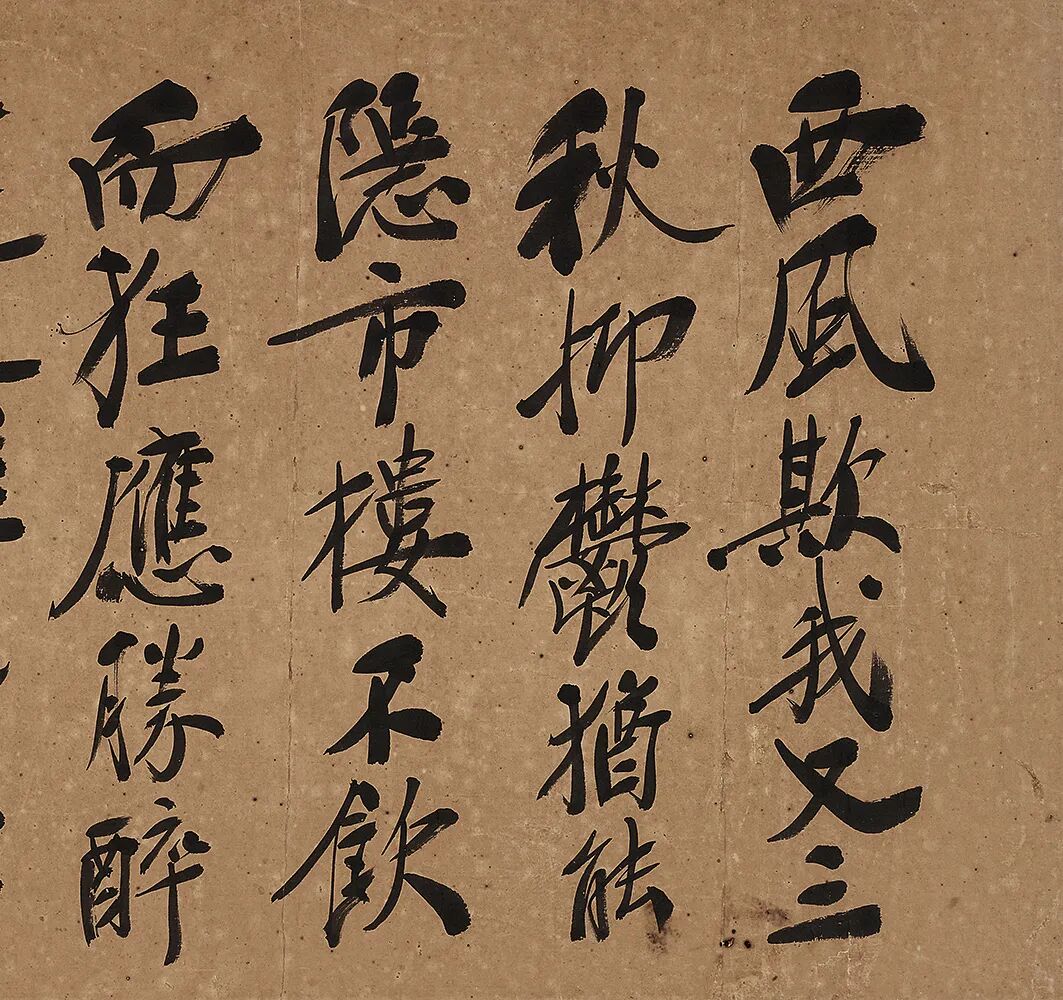 西風欺我又三
秋抑鬱猶能
隱市樓不飲
而狂應勝醉